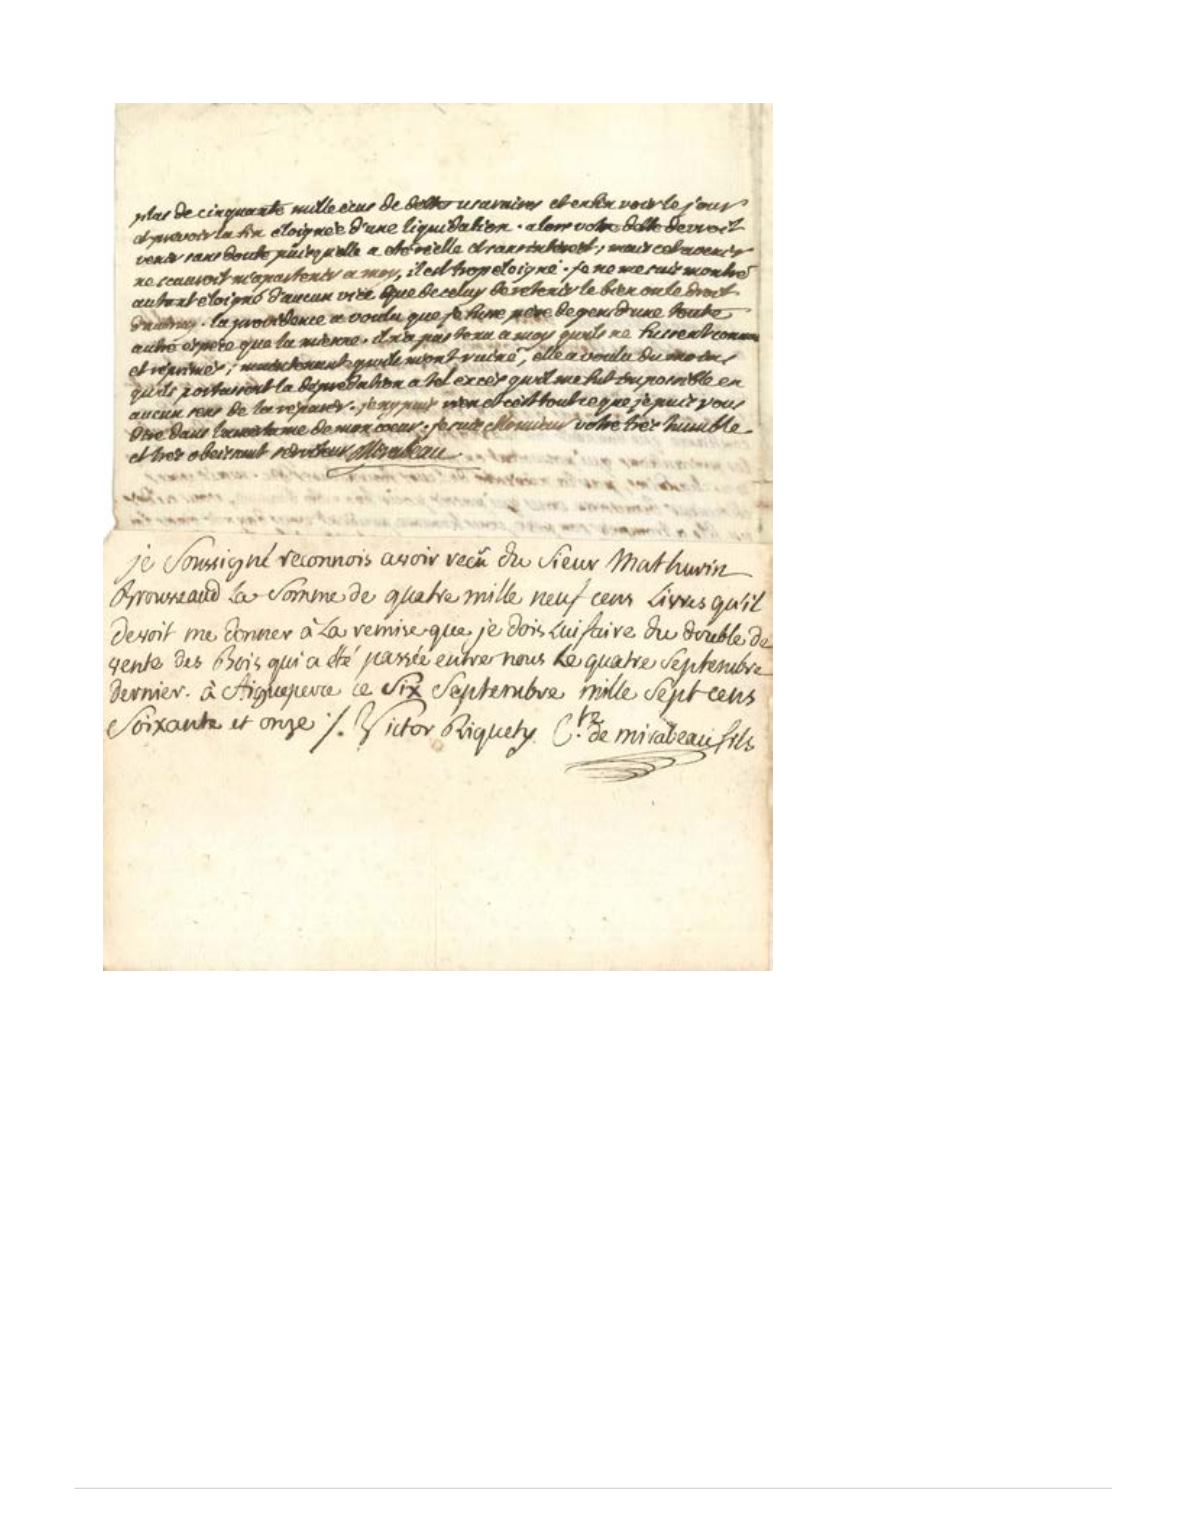 plus de cinquante mille ecus de dettes usuraires et enfin voir le jour
et prevoir la fin eloignée d'une liquidation. alors votre dette devroit
venir sans doute puisqu'elle a eté réelle et sans interest; mais cet avenir
ne scauroit m'apartenir a moy, il est trop eloigné. je ne me suis montré
autant éloigné d'aucun vice que de celuy de retenir le bien ou le droit
d'autruy. la providence a voulu que je fusse père de gens d'une toute
autre espece que la mienne. il n'a pas tenu a moy qu'ils ne fussent connus
et réprimés; maintenant qu'ils m'ont ruiné, elle a voulu du moins
qu'ils portassent la dépredation a tel excès qu'il me fut impossible en
aucun sens de la réparer. je n'y puis rien et c'est tout ce que je puis vous
dire dans de mon coeur. je suis Monsieur votre très humble
et très obeissant serviteur Mirabeau
je soussigné reconnois avoir reçu du sieur Mathurin
Brousseaud La somme de quatre mille neuf cens Livres qu'il
devoit me donner à La remise que je dois Lui faire du double de
vente des Bois qui a été passée entre nous Le quatre Septembre
dernier. à Aigueperce ce Six Septembre mille Sept cens
Soixante et onze ./. Victor Riquety C.te de mirabeau fils